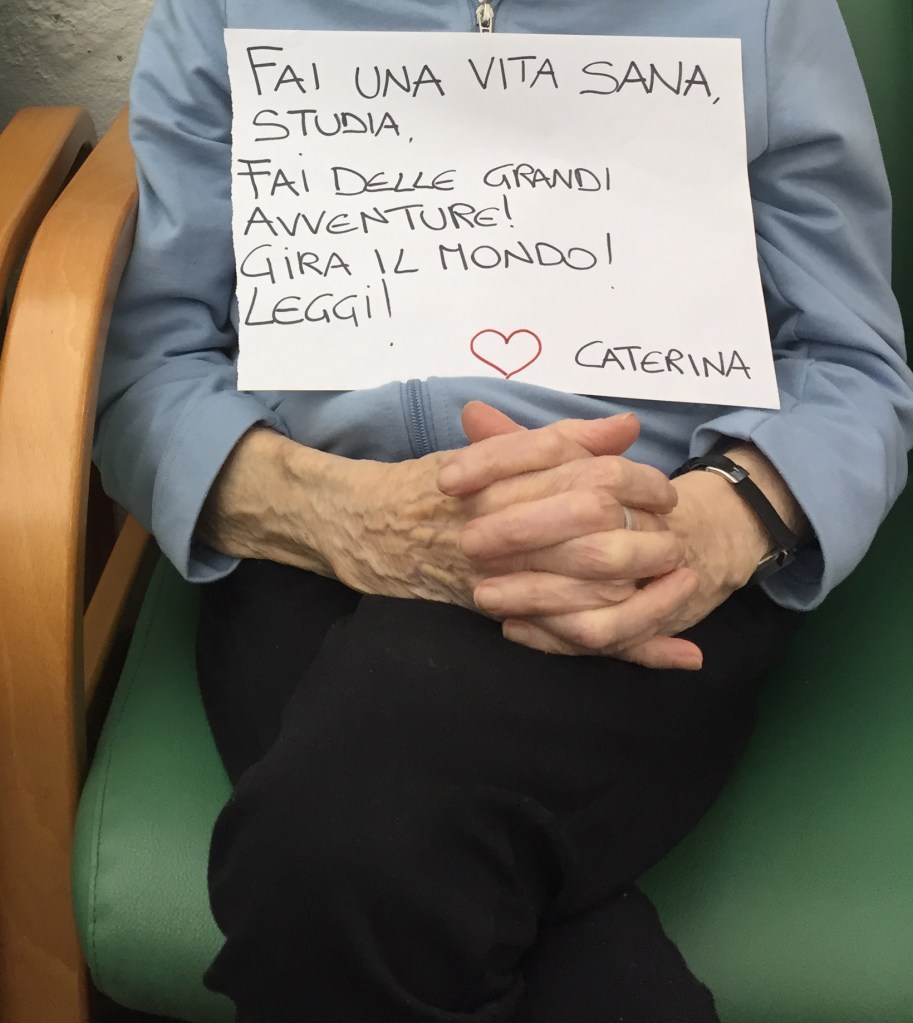 FAI UNA VITA SANA,
STUDIA,
FAI DELLE GRANDI
AVVENTURE!
GIRA IL MONDO!
LEGGI!
CATERINA